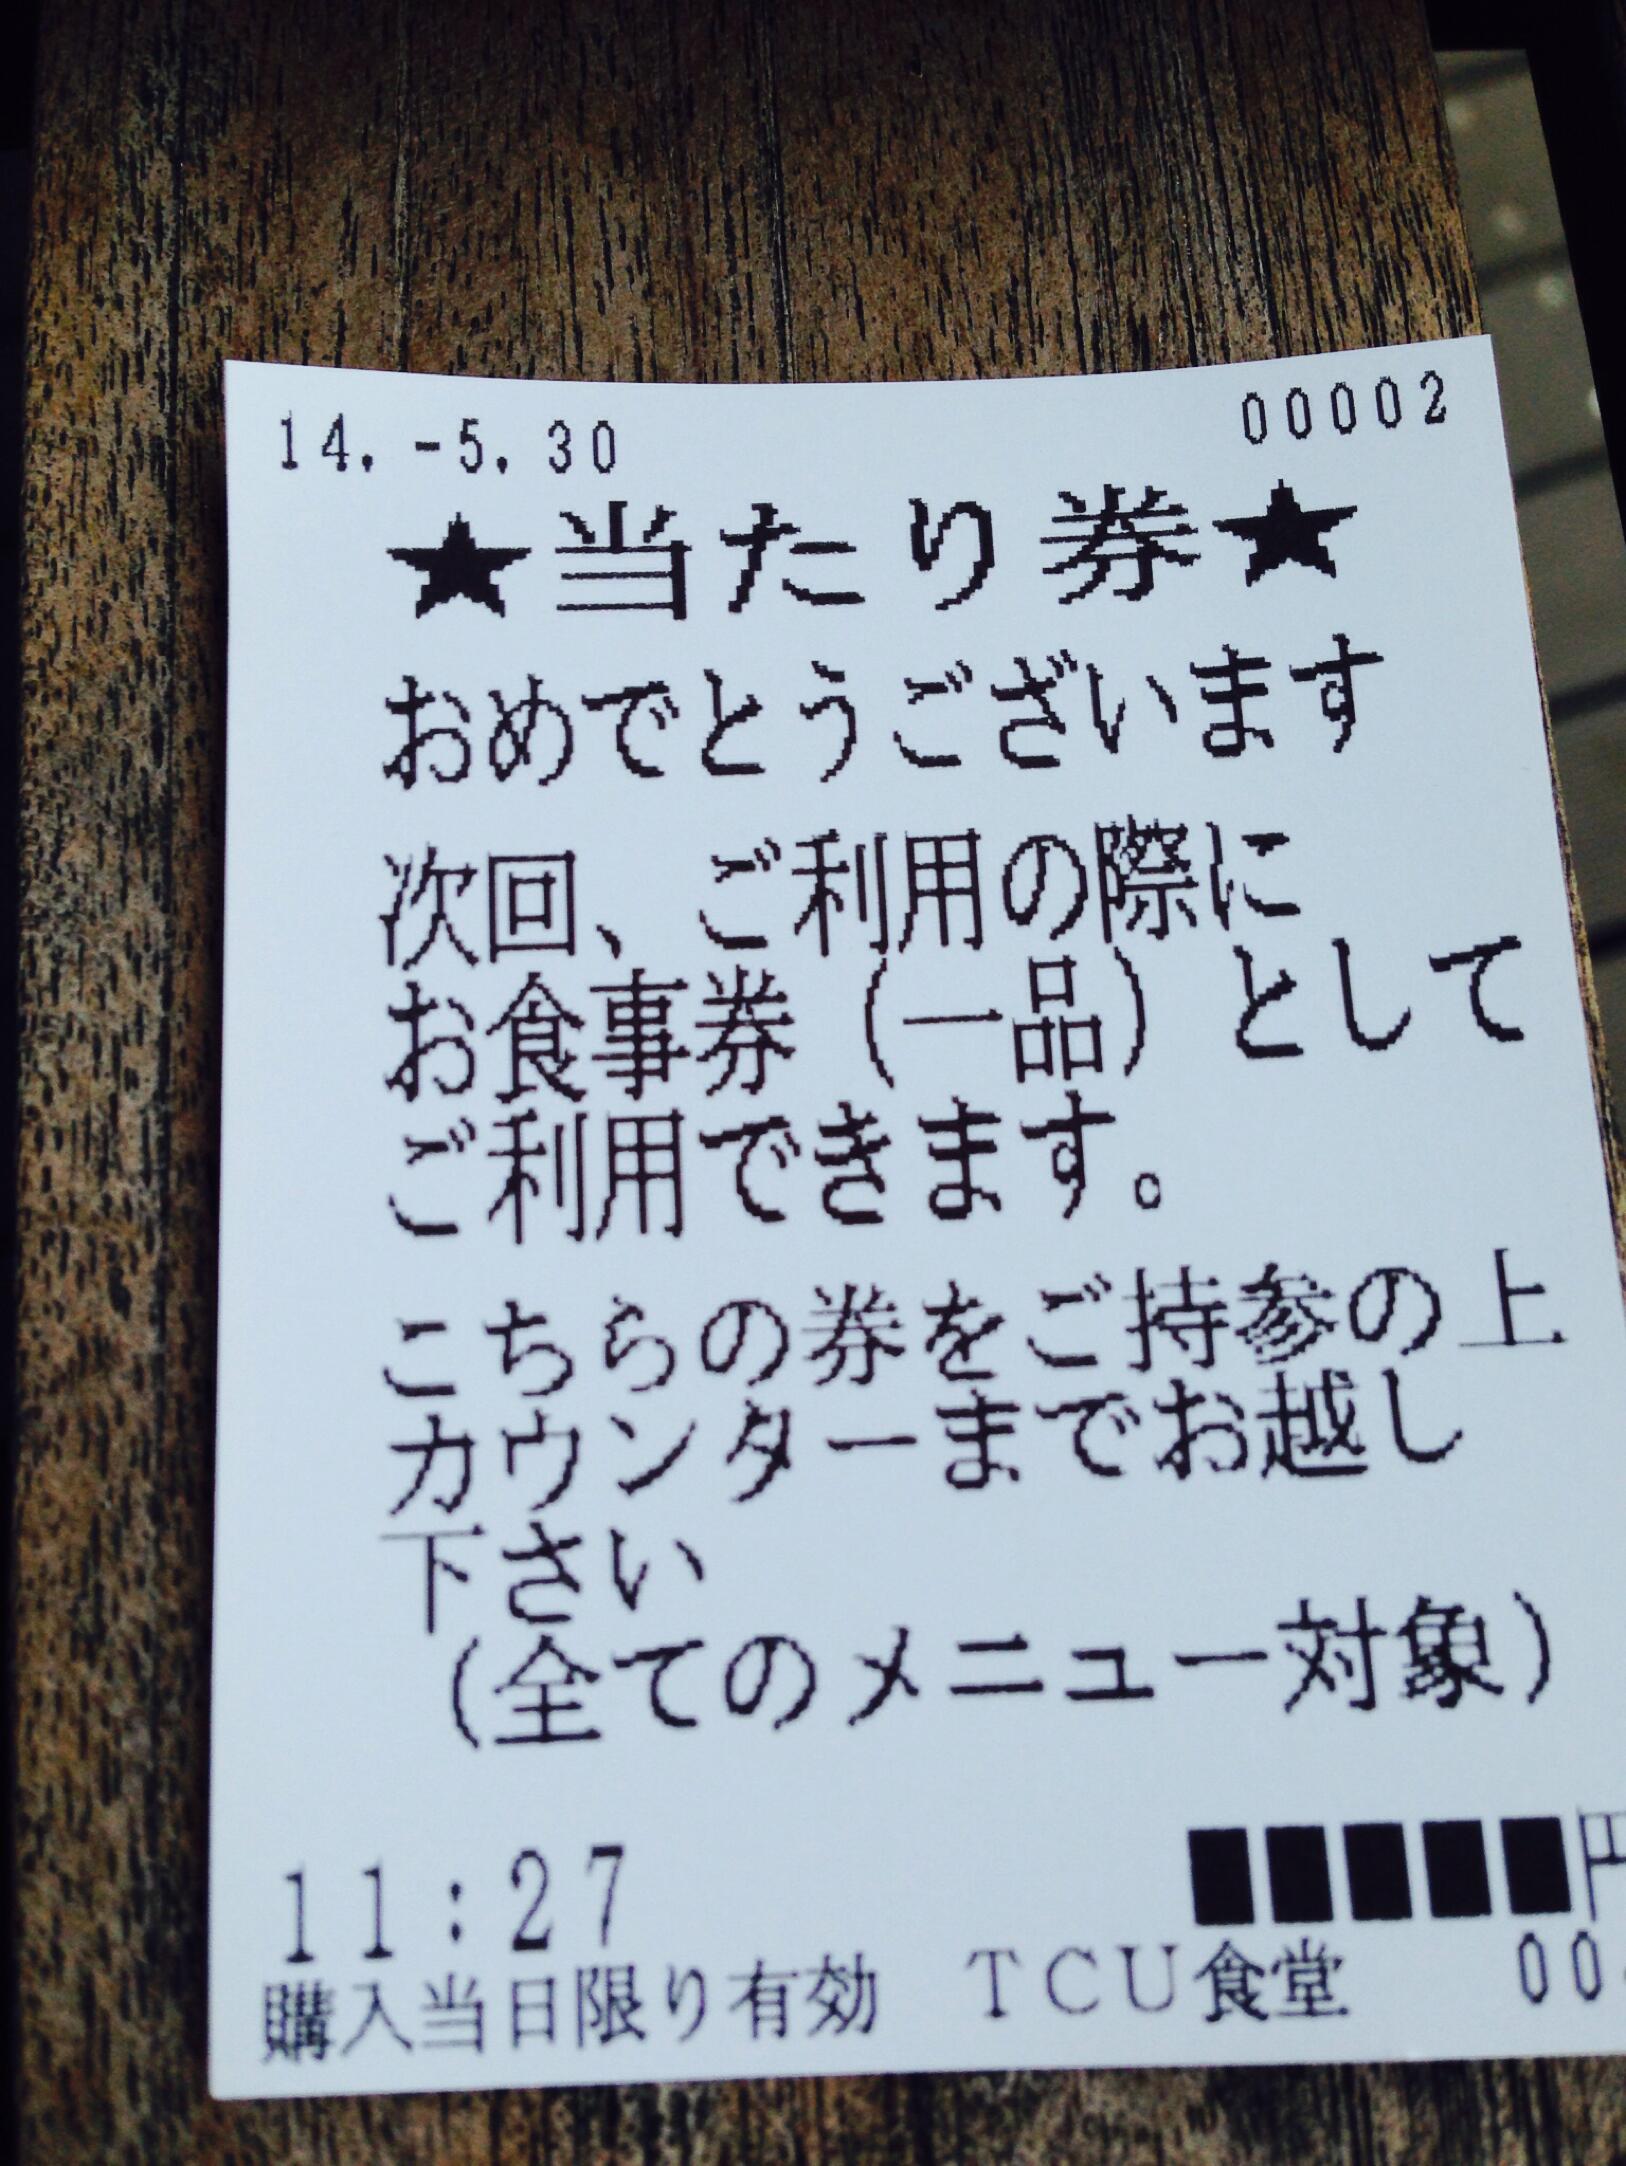 14.-5.30 00002
★当たり券★
おめでとうございます
次回、ご利用の際に
お食事券(一品)として
ご利用できます。
こちらの券をご持参の上
カウンターまでお越し
下さい
(全てのメニュー対象)
11:27 ■■■■■円
購入当日限り有効 TCU食堂 00